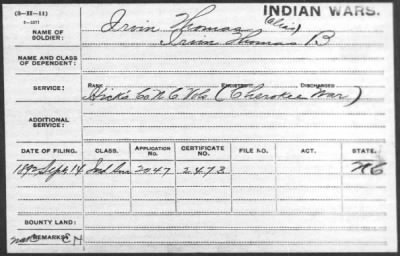 (3-22-11)
INDIAN WARS.
NAME OF SOLDIER:
Irvin Thomas (alias)
Irvin Thomas B
NAME AND CLASS OF DEPENDENT:
SERVICE:
RANK ENLISTED DISCHARGED
Hick's Co N C Vols (Cherokee War)
ADDITIONAL SERVICE:
DATE OF FILING. CLASS. APPLICATION No. CERTIFICATE No. FILE NO. ACT. STATE.
1892 Sept. 14 Ind Sur 2047 2473 N C
BOUNTY LAND:
REMARKS: